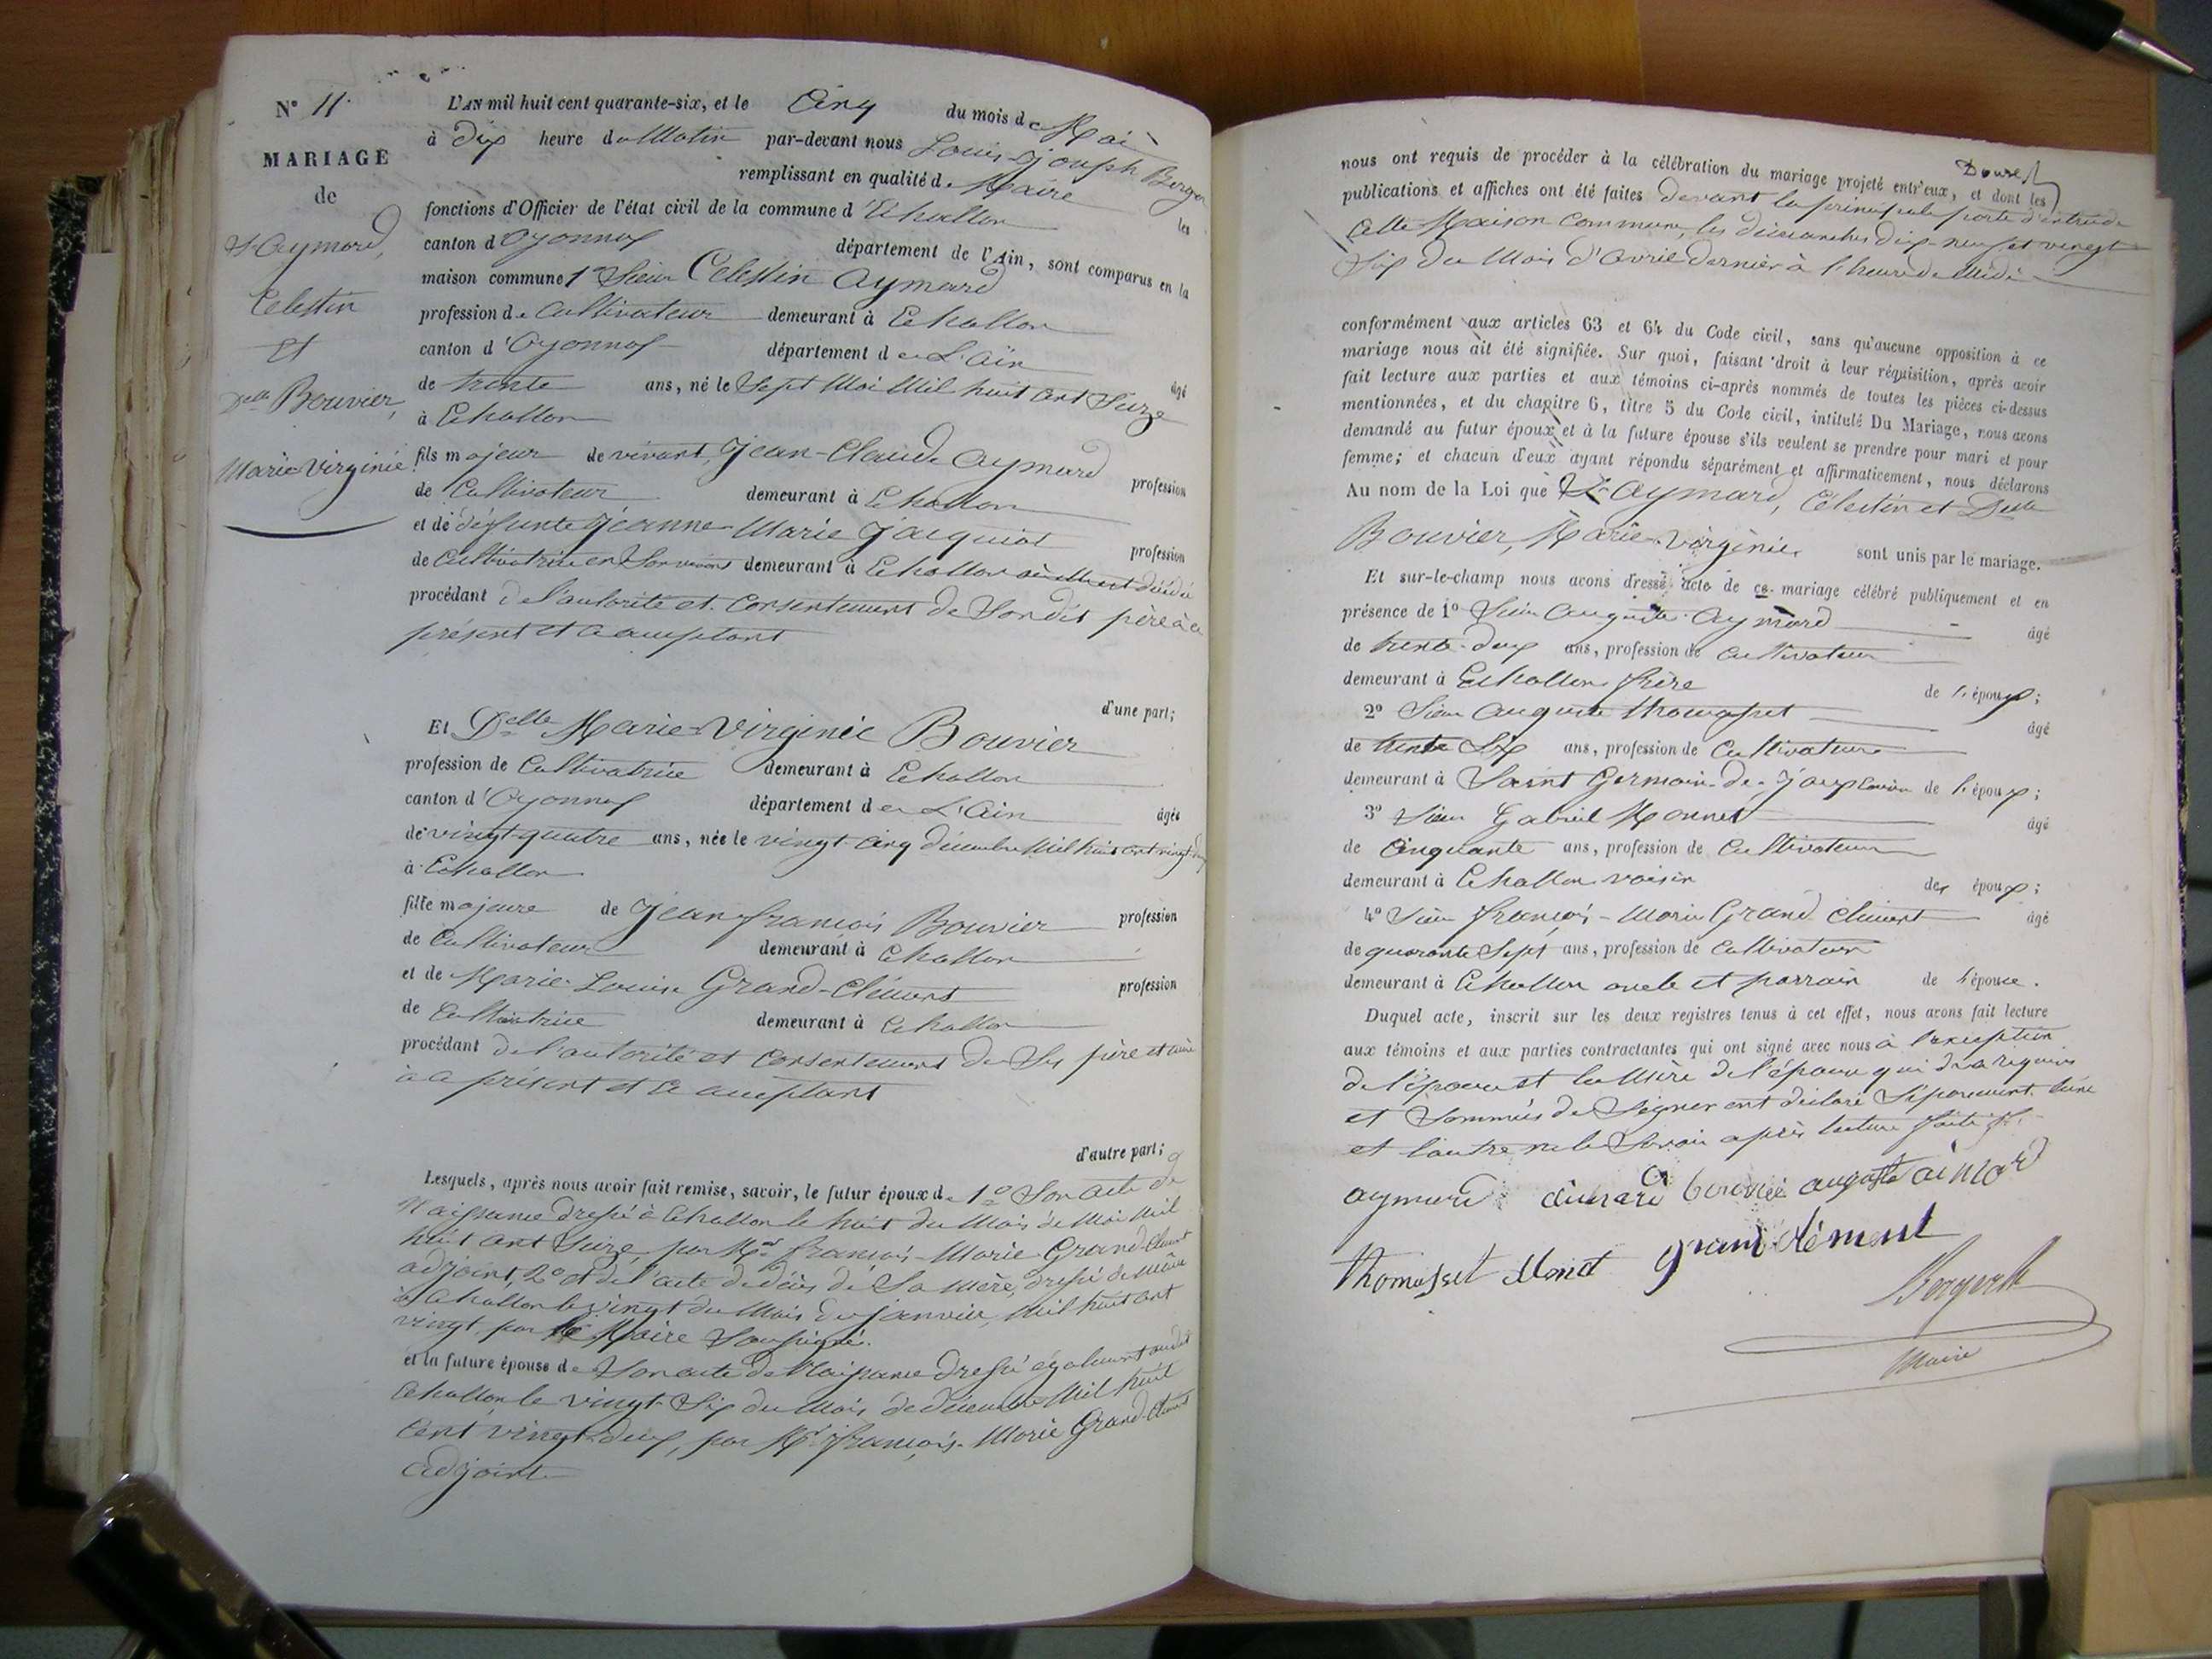 N° 11.
MARIAGE
de
Sr Aymard,
Celestin
Et
Delle Bouvier,
Marie Virginie
L'AN mil huit cent quarante-six, et le Cinq du mois de Mai
à Dix heure du Matin par-devant nous Louis-Joseph Berger
remplissant en qualité de Maire les
fonctions d'Officier de l'état civil de la commune d'Echallon
canton d'Oyonnax département de l'Ain, sont comparus en la
maison commune 1° Sieur Celestin Aymard
profession de Cultivateur demeurant à Echallon
canton d'Oyonnax département de L'Ain âgé
de trente ans, né le Sept Mai Mil huit Cent Seize
à Echallon
fils majeur de vivant Jean-Claude Aymard profession
de Cultivateur demeurant à Echallon
et de défunte Jeanne-Marie Jacquiot profession
de Cultivatrice en Son vivant demeurant à Echallon où elle est décédée
procédant de l'autorité et Consentement de Son dit père à ce
présent et acceptant
d'une part;
Et Delle Marie-Virginie Bouvier
profession de Cultivatrice demeurant à Echallon
canton d'Oyonnax département de L'Ain âgée
de vingt-quatre ans, née le vingt-Cinq décembre Mil huit Cent vingt-
à Echallon
fille majeure de Jean-françois Bouvier profession
de Cultivateur demeurant à Echallon
et de Marie-Louise Grand-Clément profession
de Cultivatrice demeurant à Echallon
procédant de l'autorité et Consentement de Ses père et mère
à ce présent et Ce acceptant
d'autre part;
Lesquels, après nous avoir fait remise, savoir, le futur époux de 1° Son acte de
Naissance dressé à Echallon le huit du Mois de Mai Mil
huit Cent Seize, par Mr françois-Marie Grand-Clément
adjoint, 2° et de l'acte de décès de Sa Mère, dressé de même
à Echallon le vingt du Mois de janvier, Mil huit Cent
vingt, par le Maire Soussigné.
et la future épouse de Son acte de Naissance dressé également audit
Echallon le vingt-Six du Mois de décembre Mil huit
Cent vingt-deux, par Mr françois-Marie Grand-Clément
adjoint
nous ont requis de procéder à la célébration du mariage projeté entr'eux, et dont les
publications et affiches ont été faites devant la principale porte d'entrée de
Cette Maison Commune, les dimanches dix-neuf et vingt-
Six du Mois d'Avril dernier à l'heure de Midi
conformément aux articles 63 et 64 du Code civil, sans qu'aucune opposition à ce
mariage nous ait été signifiée. Sur quoi, faisant droit à leur réquisition, après avoir
fait lecture aux parties et aux témoins ci-après nommés de toutes les pièces ci-dessus
mentionnées, et du chapitre 6, titre 5 du Code civil, intitulé Du Mariage, nous avons
demandé au futur époux et à la future épouse s'ils veulent se prendre pour mari et pour
femme; et chacun d'eux ayant répondu séparément et affirmativement, nous déclarons
Au nom de la Loi que Sr Aymard, Célestin et Delle
Bouvier, Marie-Virginie, sont unis par le mariage.
Et sur-le-champ nous avons dressé acte de ce mariage célébré publiquement et en
présence de 1° Sieur Auguste Aymard âgé
de trente-deux ans, profession de Cultivateur
demeurant à Echallon frère de l'époux;
2° Sieur Auguste Thomasset âgé
de trente Six ans, profession de Cultivateur
demeurant à Saint Germain-de-Joux Cousin de l'époux;
3° Sieur Gabriel Monnet âgé
de Cinquante ans, profession de Cultivateur
demeurant à Echallon voisin des époux;
4° Sieur françois-Marie Grand Clément âgé
de quarante Sept ans, profession de Cultivateur
demeurant à Echallon oncle et parrain de l'épouse.
Duquel acte, inscrit sur les deux registres tenus à cet effet, nous avons fait lecture
aux témoins et aux parties contractantes qui ont signé avec nous à l'exception
de l'épouse et la Mère de l'épouse qui de ce requises
et Sommées de Signer ont déclaré Séparement l'une
et l'autre ne le Savoir après lecture faite
aymard aimard bouvier auguste aimard
Thomasset Monet grand clément
Berger
Maire